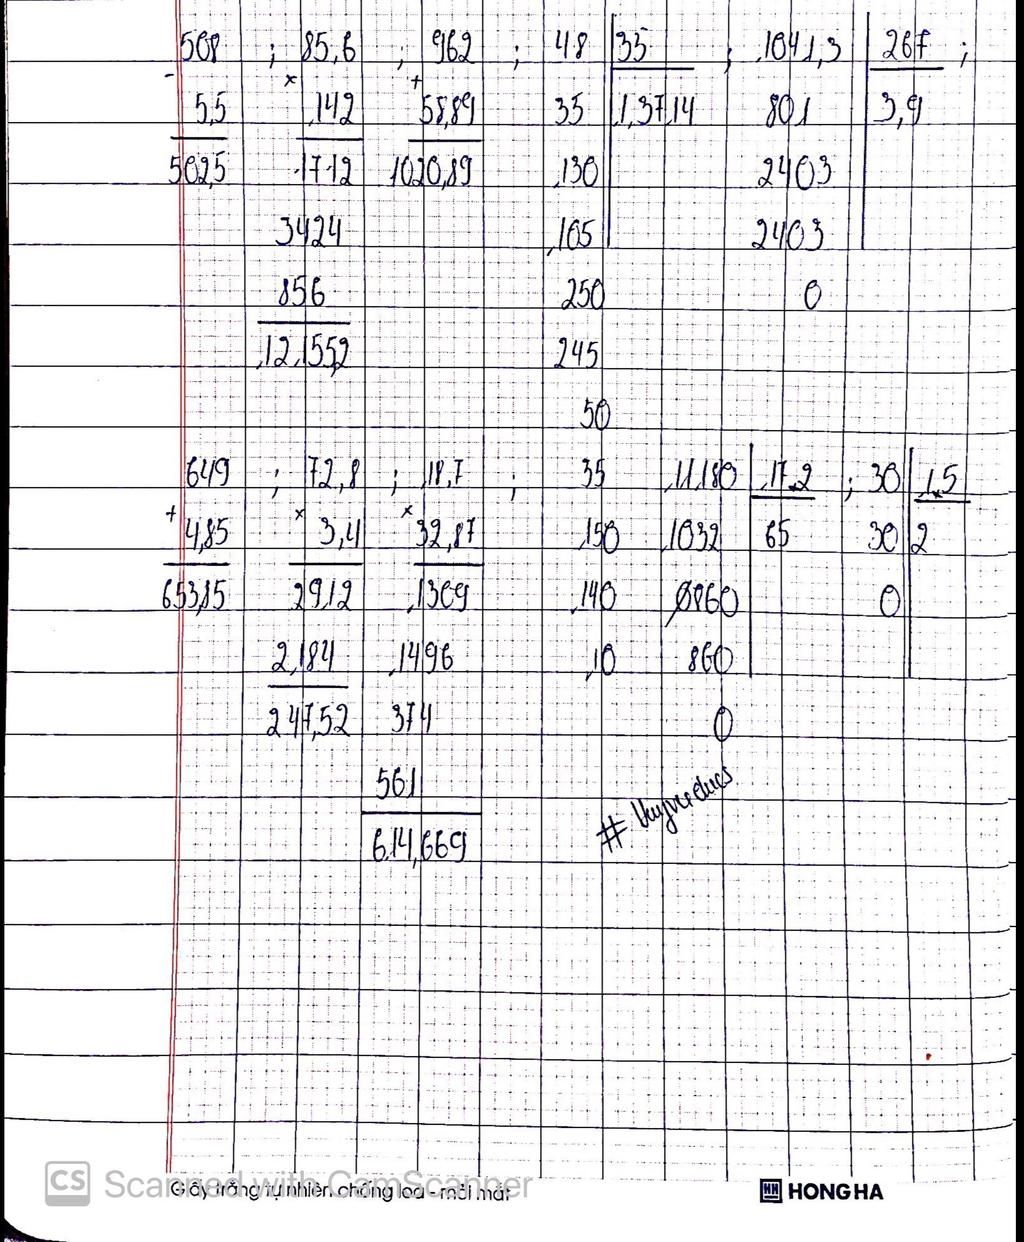 508 ; 85,6 ; 962 ; 48 35 ; 1041,3 267 ;
- × +
5,5 142 58,89 35 1,3714 801 3,9
502,5 1712 1020,89 130 2403
3424 105 2403
856 250 0
12.155,2 245
50
649 ; 72,8 ; 18,7 ; 35 11.180 17.2 ; 30 1,5
+ × ×
4,85 3,4 32,87 150 1032 65 30 2
653,85 2912 1309 140 0860 0
2184 1496 10 860
247,52 374 0
561
614,669
CS Scanned with CamScanner
Giấy trắng tự nhiên, chống lóa - mỏi mắt
HH HONG HA